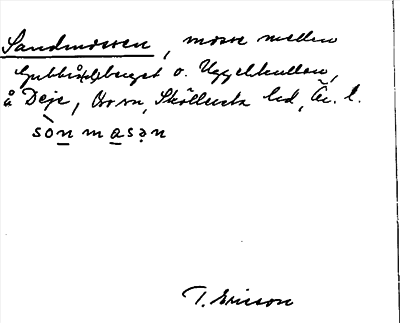 Sandmossen, mosse mellan
Gubbå(s)berget o. Uggelkullen,
å Deje, Ö. sn, Sköllersta hd, Är. l.
sònmasən
T. Ericson